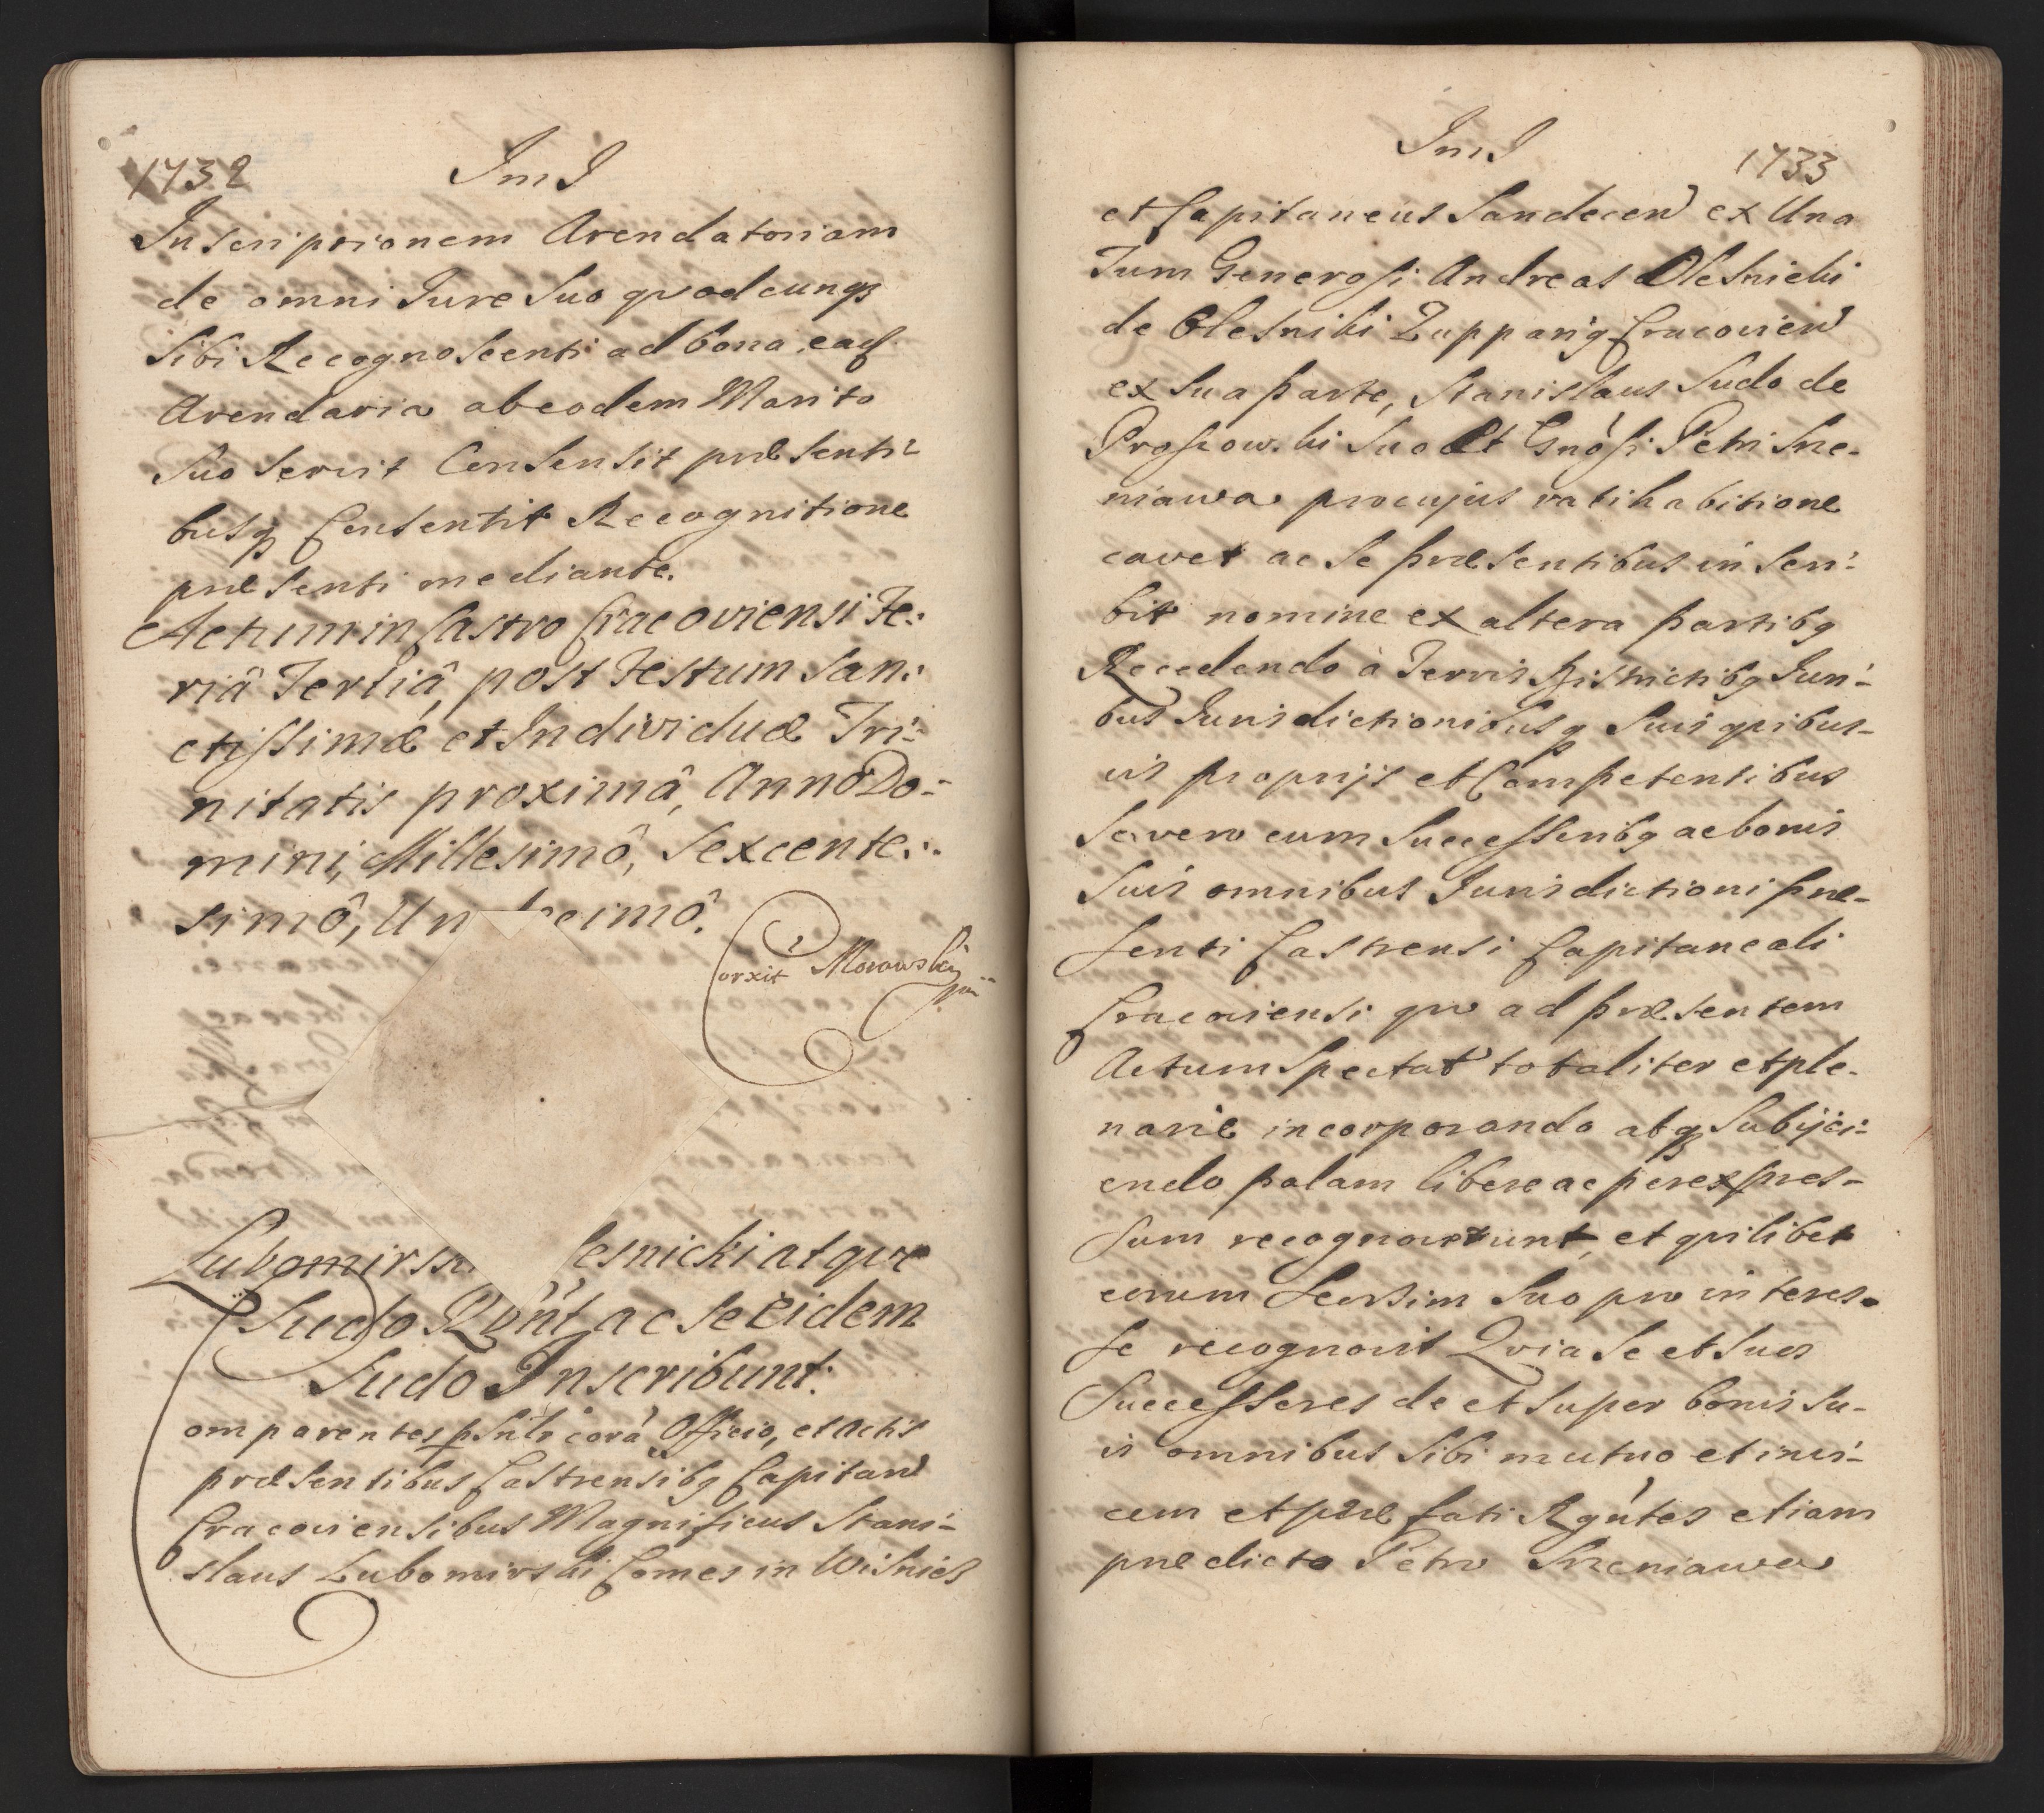 1732
JmJ
Inscriptionem Arendatoriam
de omni Jure Suo quodcunqз
Sibi Recognoscenti ad bona eads
Arendaria ab eodem Marito
Suo servit Consensit præsenti-
busqз Consentit Recognitione
præsenti mediante.
Actum in Castro Cracoviensi Fe:
riâ Tertiâ, post Festum San:
ctissimæ et Individuæ Tri:
nitatis proximâ, Anno Do:
mini, Millesimô, Sexcente:
simô, Un cimô.
Corxit Morawsky
mp
Lubomirs lesnicki atque
Sudo Rgnt ac se eidem
Sudo Inscribunt.
Comparentes psnlr corã Officio, et Actis
præsentibus Castrensibз Capitan
Cracoviensibus Magnificus Stani-
slaus Lubomirski Comes in Wisnicz
JmJ
1733
et Capitaneus Sandecen ex Una
Tum Generosi Andreas Olesnicki
de Olesniki Zupparig Cracovien
ex Sua parte, Stanislaus Sudo de
Suo Et Gnosi Petri Sre-
niawa pro cujus ratihabitione
cavet ac Se præsentibus inscri-
bit nomine ex altera partibз
Recedendo à Terris Districtibз Juri-
bus Jurisdictionibusqз Suis quibus-
vis proprijs et Competentibus
Se vero cum Successoribз ac bonis
Suis omnibus Jurisdictioni præ-
senti Castrensi Capitaneali
Cracoviensi quo ad præsentem
Actum Spectat totaliter et ple-
narie incorporando atqз Subijci-
endo palam libere ac per expres-
sum recognoverunt, et quilibet
eorum Seorsim Suo pro interes-
se recognovit Quia Se et Suos
Successores de et Super bonis Su-
is omnibus Sibi mutuo et invi-
cem et præfati Rgntes etiam
prædicto Petro Srzeniawa